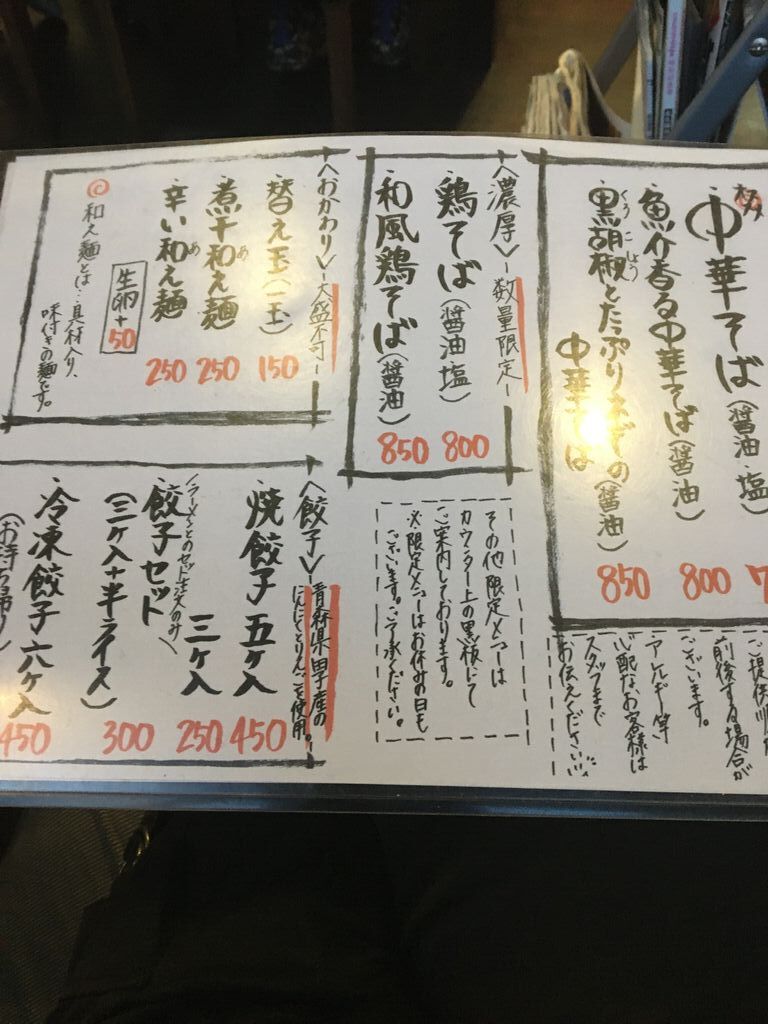 中華そば(醤油 塩) 7
魚介香る中華そば(醤油) 800
黒胡椒とたっぷりねぎの
くろこしょう
中華そば(醤油) 850
前後する場合が
ございます。
アレルギー等
心配なお客様は
スタッフまで
お伝えください
〈濃厚〉-数量限定-
鶏そば(醤油 塩) 800
和風鶏そば(醤油) 850
その他限定メニューは
カウンター上の黒板にて
ご案内しております。
※限定メニューはお休みの日も
ございます。ご了承ください。
〈おかわり〉-大盛不可-
替え玉(一玉) 150
煮干和え麺 250
め
辛い和え麺 250
め
生卵+50
和え麺とは…具材入り、
味付きの麺です。
〈餃子〉-青森県田子産の
にんにくとりんごを使用。-
焼餃子 五ヶ入 450
三ヶ入 250
(ラーメンとのセット注文のみ)
餃子セット
(三ヶ入+半ライス) 300
冷凍餃子 六ヶ入 450
(お持ち帰り)